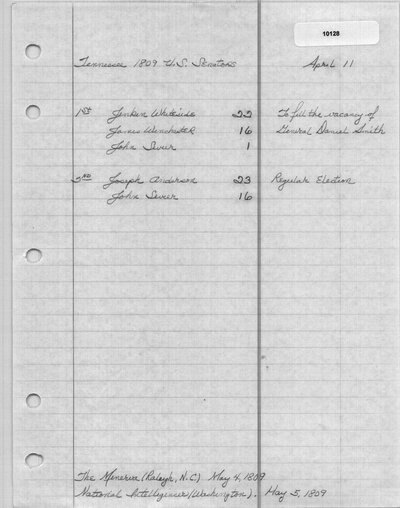 10128
Tennessee 1809 U.S. Senators April 11
1st Jenkin Whiteside 22 To fill the vacancy of
James Winchester 16 General Daniel Smith
John Sevier 1
2nd Joseph Anderson 23 Regular Election
John Sevier 16
The Minerva (Raleigh, N.C.) May 4, 1809
National Intelligencer (Washington). May 5, 1809